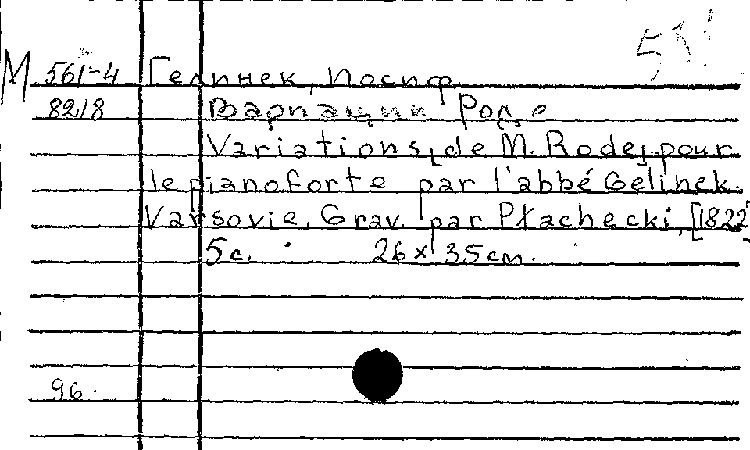 M 561-4 Гелинек, Иосиф
8218 Вариации Роде
Variations de M. Rode, pour
le pianoforte par l'abbé Gelinek.
Varsovie, Grav. par Płachecki, [1822
5c. 26 x 35 cm.
96.